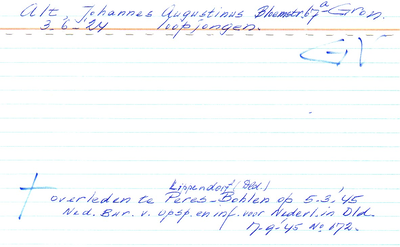 Alt, Johannes Augustinus Bloemstr. 67a Gron.
3-6-24 loopjongen.
Lippendorf (Dld.)
overleden te Peres-Bohlen op 5-3-'45
Ned. Bur. v. opsp. en inf. voor Nederl. in Dld.
17-9-'45 No 672.